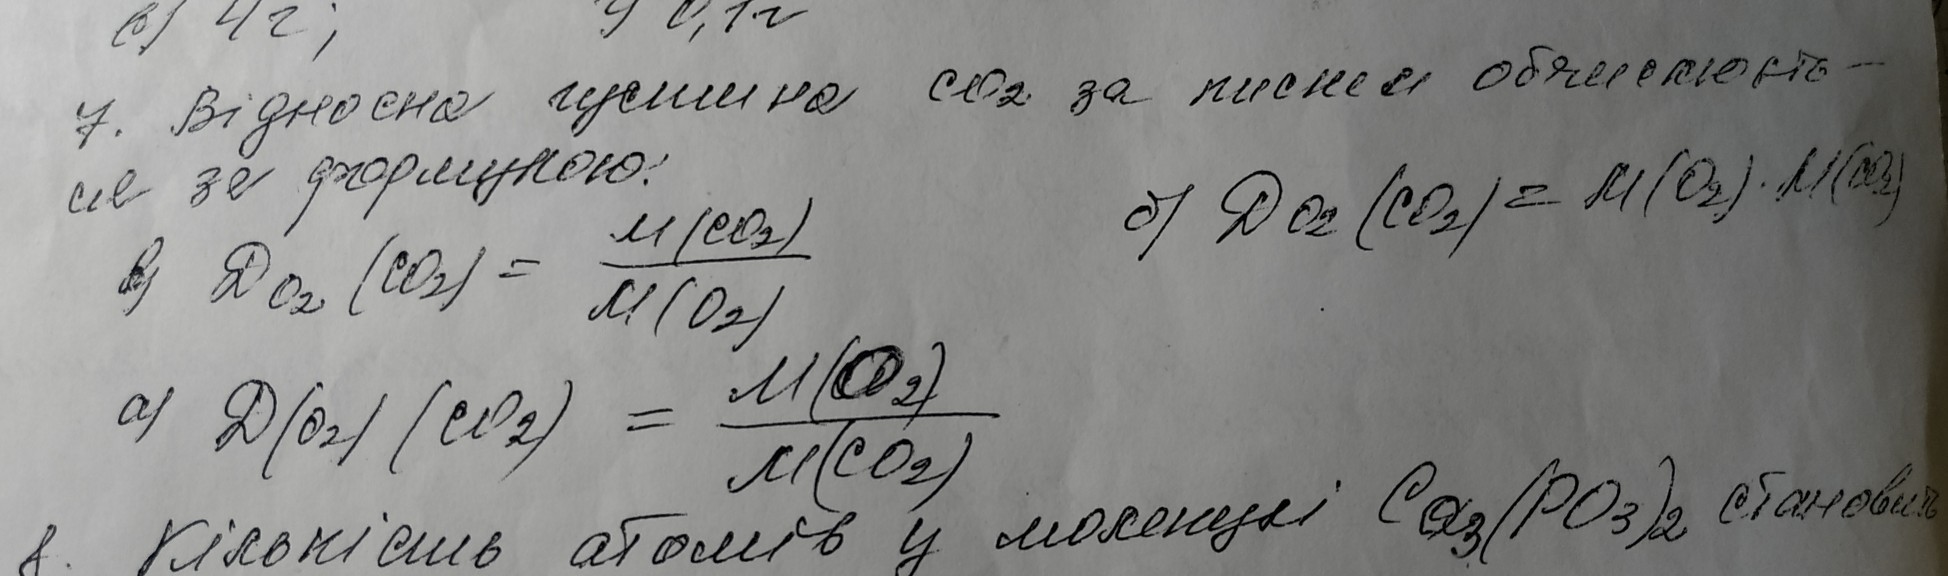 в) 4г; г) 0,1г
7. Відносна густина CO₂ за киснем обчислюєть-
ся за формулою:
в) D O₂ (CO₂) = M(CO₂) / M(O₂) б) D O₂ (CO₂) = M(O₂) · M(CO₂)
а) D(O₂) (CO₂) = M(O₂) / M(CO₂)
8. Кількість атомів у молекулі Ca₃(PO₃)₂ становить